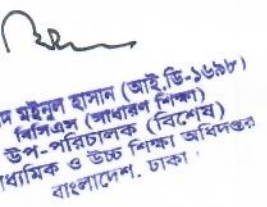 মইনুল হাসান (আই.ডি-১৬৯৮)
বিসিএস (সাধারণ শিক্ষা)
উপ-পরিচালক (বিশেষ)
মাধ্যমিক ও উচ্চ শিক্ষা অধিদপ্তর
বাংলাদেশ, ঢাকা।